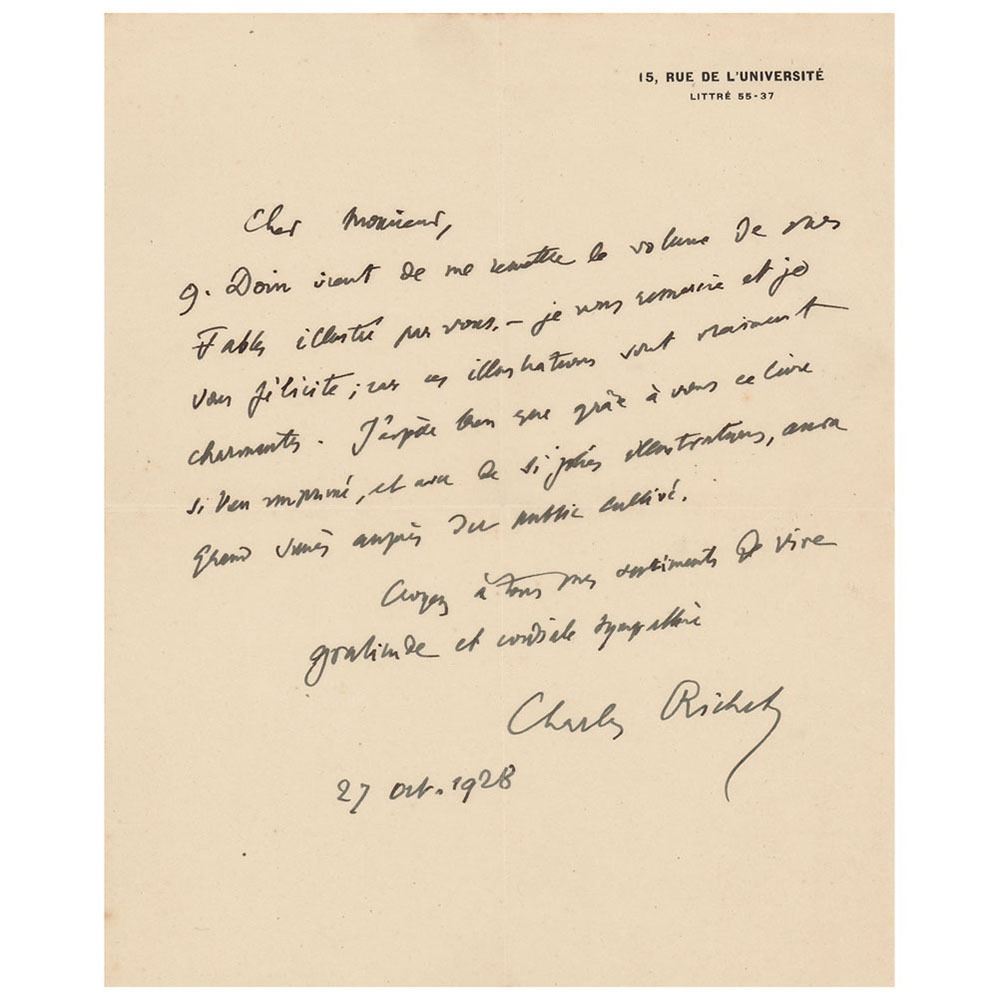 15, RUE DE L'UNIVERSITÉ
LITTRÉ 55-37
Cher Monsieur,
G. Doin vient de me remettre le volume de mes
Fables illustré par vous. – je vous remercie et je
vous félicite ; car ces illustrations sont vraiment
charmantes. J'espère bien que grâce à vous ce livre
si bien imprimé, et avec de si jolies illustrations, aura
grand succès auprès du public cultivé.
Croyez à tous mes sentiments de vive
gratitude et cordiale sympathie
Charles Richet
27 oct. 1928